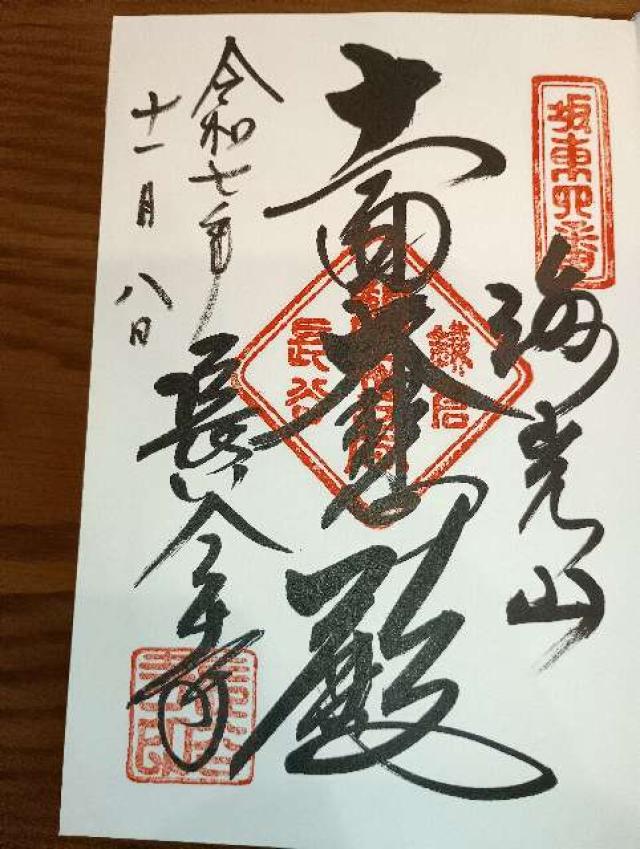 坂東四番
海光山
十一面
大悲殿
鎌倉
長谷
長谷寺
令和七年
十一月八日